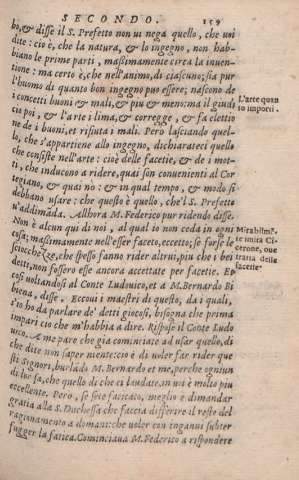 SECONDO. 159
bo, & disse il S. Prefetto non vi nega quello, che uoi
dite: cio è, che la natura, & lo ingegno, non hab-
biano le prime parti, maßimamente circa la inuen-
tione: ma certo è, che nell'animo, di ciascuno, sia pur
l'huomo di quanto bon ingegno puo essere; nascono de
i concetti buoni & mali, & piu & meno: ma il giudi
cio poi, & l'arte i lima, & corregge, & fa elettio
ne de i buoni, et rifiuta i mali. Però lasciando quel-
lo, che s'appartiene allo ingegno, dichiarateci quello
che consiste nell'arte: cioè delle facetie, & de i mot-
ti, che inducono a ridere, quai son conuenienti al Cor
tegiano, & quai nò: & in qual tempo, & modo si
debbano usare: che questo è quello, che'l S. Prefetto
u'addimãda. Allhora M. Federico pur ridendo disse.
Non è alcun qui di noi, al qual io non ceda in ogni
cosa; maßimamente nell'esser faceto, eccetto; se forse le
sciocchezze, che spesso fanno rider altrui, piu che i bei
detti, non fossero esse ancora accettate per facetie. Et
così uoltandosi al Conte Ludouico, et a M. Bernardo Bi
biena, disse. Eccoui i maestri di questo, da i quali,
s'io ho da parlare de' detti giocosi, bisogna che prima
impari cio che m'habbia a dire. Rispose il Conte Ludo
uico. A me pare che gia cominciate ad usar quello, di
che dite non saper niente: cio è di uoler far rider que
sti Signori, burlãdo M. Bernardo et me, perche ogniun
di lor sa, che quello di che ci laudate, in uoi è molto piu
eccellente. Pero, se sete faticato, meglio è dimandar
gratia alla S. Duchessa che faccia differire il resto del
ragionamento a domani: che uoler con inganni subter
fugger la fatica. Cominciaua M. Federico a rispondere
L'arte quan
to importi.
Mirabilmẽ-
te imita Ci-
cerone, oue
tratta delle
facetie.